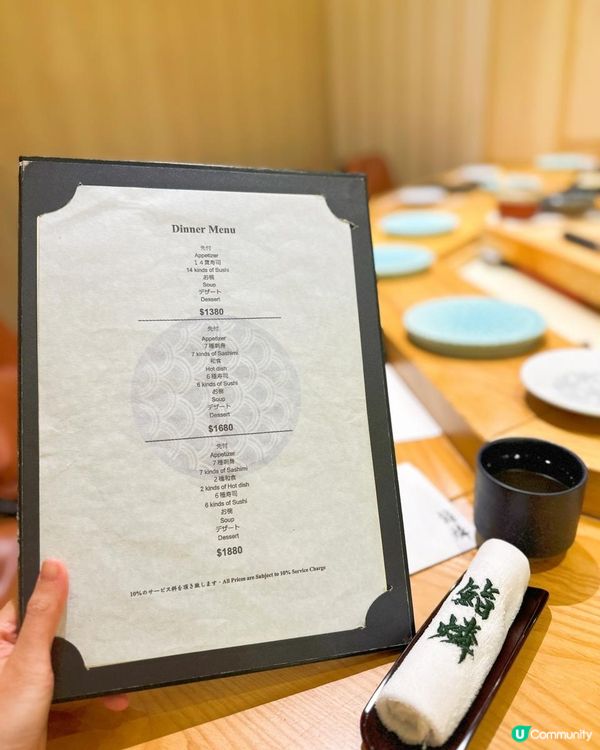 Dinner Menu
先付
Appetizer
14貫寿司
14 kinds of Sushi
お椀
Soup
デザート
Dessert
$1380
先付
Appetizer
7種刺身
7 kinds of Sashimi
和食
Hot dish
6種寿司
6 kinds of Sushi
お椀
Soup
デザート
Dessert
$1680
先付
Appetizer
7種刺身
7 kinds of Sashimi
2種和食
2 kinds of Hot dish
6種寿司
6 kinds of Sushi
お椀
Soup
デザート
Dessert
$1880
10%のサービス料を頂き致します・All Prices are Subject to 10% Service Charge
U Community